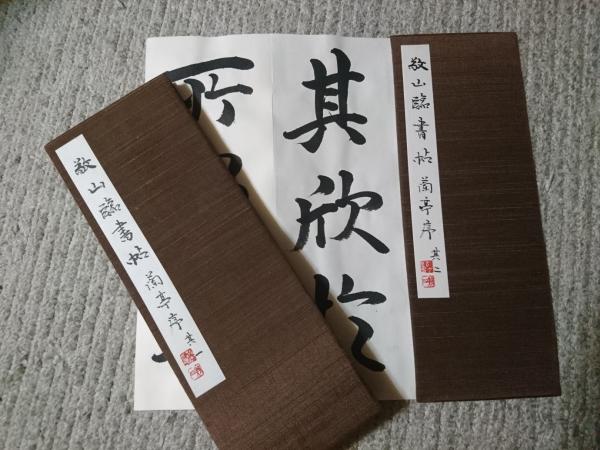 敬山臨書帖 蘭亭序 其一
其欣於
所
敬山臨書帖 蘭亭序 其二